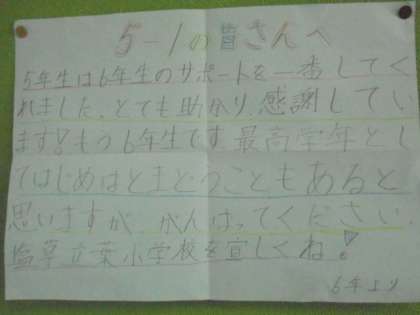 5-1の皆さんへ
5年生は6年生のサポートを一番してく
れました。とても助かり、感謝してい
ます!もう6年生です。最高学年とし
てはじめはとまどうこともあると
思いますが、がんばってください。
塩草立葉小学校を宜しくね!
6年より